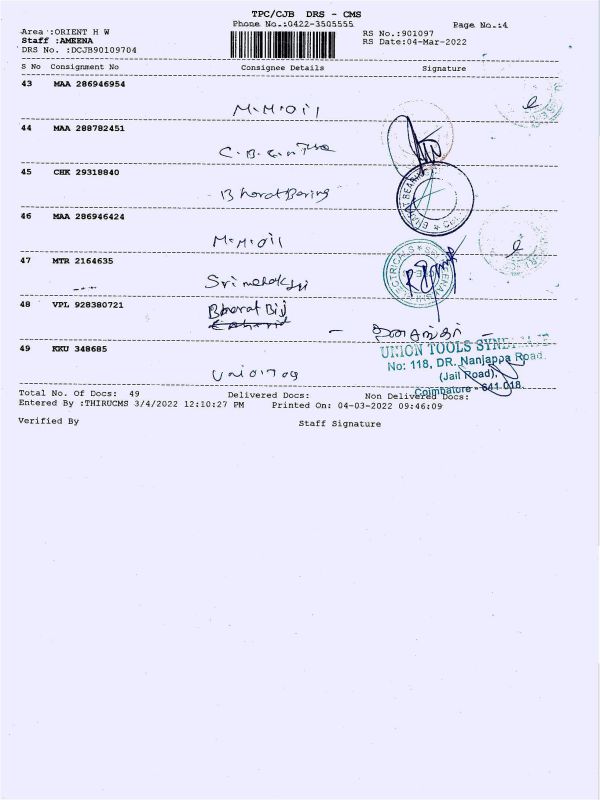 TPC/CJB DRS - CMS
Phone No.:0422-3505555
Page No.:4
Area :ORIENT H W
RS No.:901097
Staff :AMEENA
RS Date:04-Mar-2022
DRS No. :DCJB90109704
S No Consignment No Consignee Details Signature
43 MAA 286946954
M.M.Oil
44 MAA 288782451
45 CHK 29318840
Bharat Bering
46 MAA 286946424
M.M.Oil
47 MTR 2164635
48 VPL 928380721
Bharat Bij
49 KKU 348685
UNION TOOLS SYNDICATE
No: 118, DR. Nanjappa Road.
(Jail Road),
Coimbatore - 641 018.
Total No. Of Docs: 49 Delivered Docs: Non Delivered Docs:
Entered By :THIRUCMS 3/4/2022 12:10:27 PM Printed On: 04-03-2022 09:46:09
Verified By Staff Signature